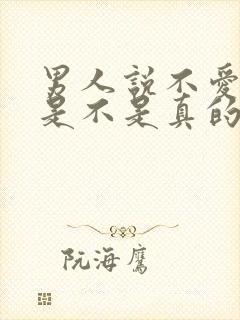 男人説不愛
是不是真的
阮海鷹